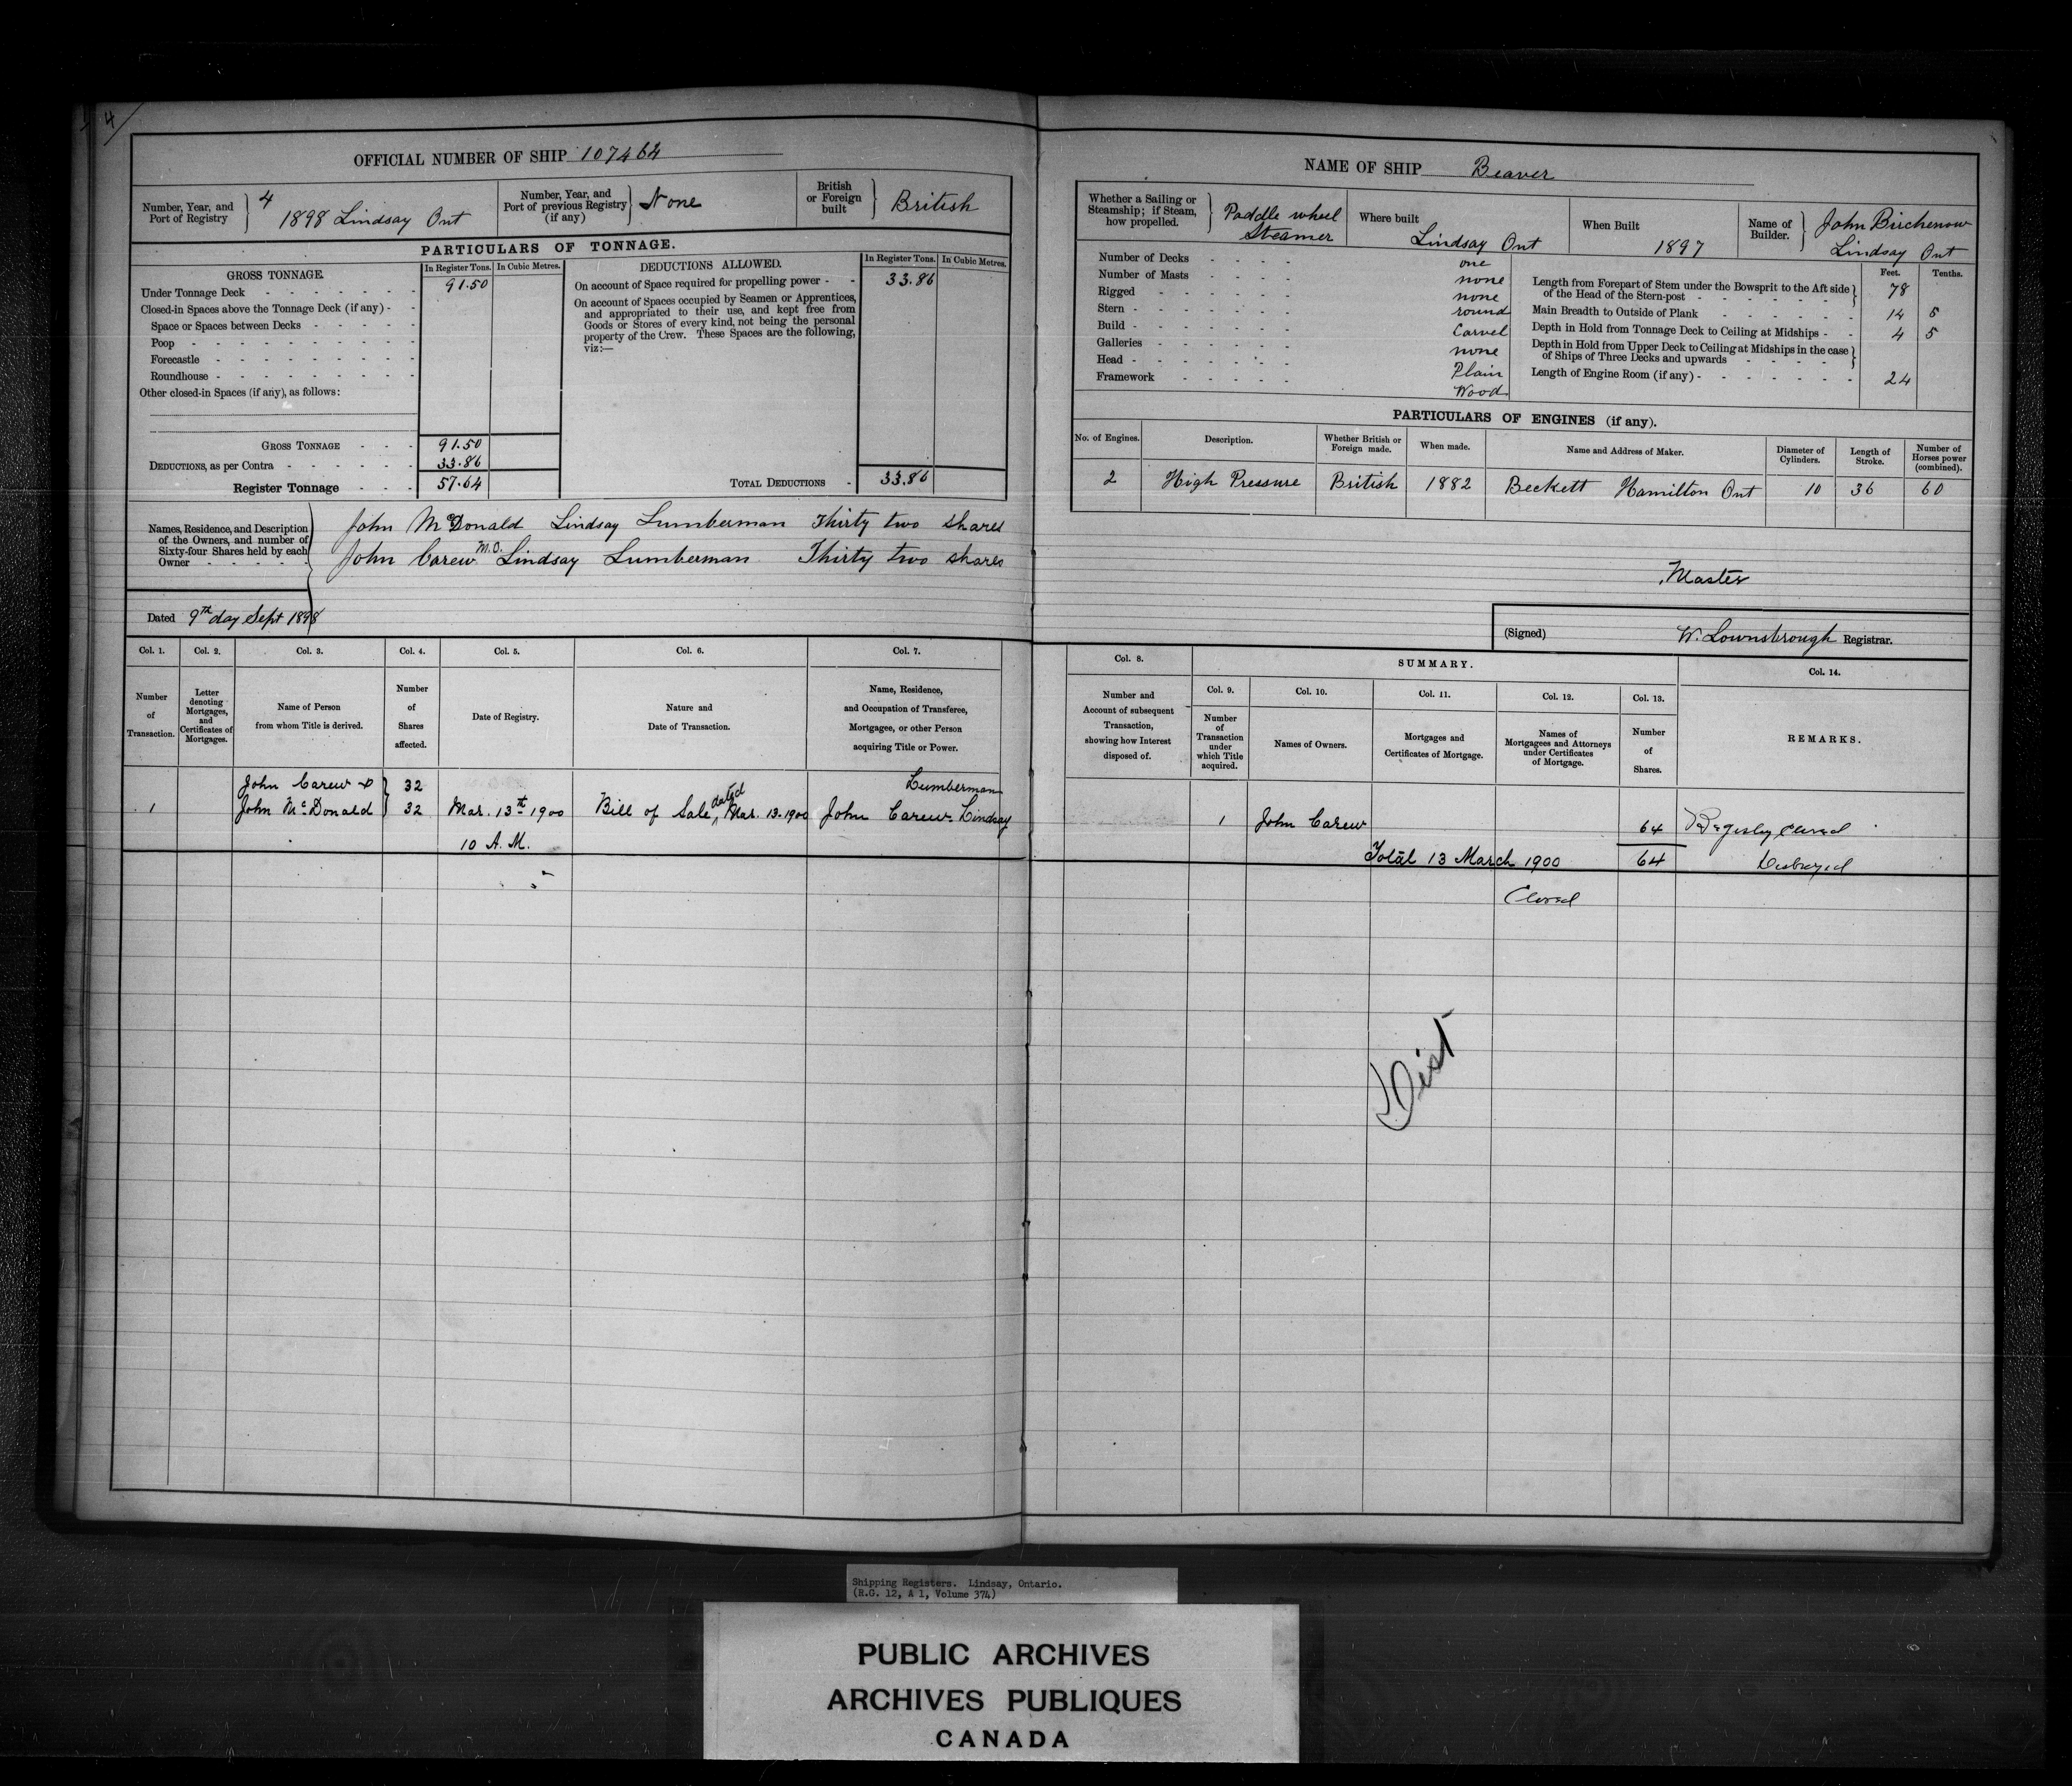 4
OFFICIAL NUMBER OF SHIP 107464
Number, Year, and Port of Registry
4
1898 Lindsay Ont
Number, Year, and Port of previous Registry (if any)
None
British or Foreign built
British
PARTICULARS OF TONNAGE.
GROSS TONNAGE.
In Register Tons.
In Cubic Metres.
Under Tonnage Deck 91.50
Closed-in Spaces above the Tonnage Deck (if any)
Space or Spaces between Decks
Poop
Forecastle
Roundhouse
Other closed-in Spaces (if any), as follows:
GROSS TONNAGE 91.50
DEDUCTIONS, as per Contra 33.86
Register Tonnage 57.64
DEDUCTIONS ALLOWED.
In Register Tons.
In Cubic Metres.
On account of Space required for propelling power 33.86
On account of Spaces occupied by Seamen or Apprentices,
and appropriated to their use, and kept free from
Goods or Stores of every kind, not being the personal
property of the Crew. These Spaces are the following,
viz:—
TOTAL DEDUCTIONS 33.86
Names, Residence, and Description
of the Owners, and number of
Sixty-four Shares held by each
Owner
John McDonald Lindsay Lumberman Thirty two shares
John Carew Lindsay Lumberman Thirty two shares
Dated 9th day Sept 1898
Col. 1.
Number of Transaction.
Col. 2.
Letter denoting Mortgages, and Certificates of Mortgages.
Col. 3.
Name of Person from whom Title is derived.
Col. 4.
Number of Shares affected.
Col. 5.
Date of Registry.
Col. 6.
Nature and Date of Transaction.
Col. 7.
Name, Residence, and Occupation of Transferee, Mortgagee, or other Person acquiring Title or Power.
John Carew & 32 Lumberman
1 John McDonald 32 Mar. 13th 1900 Bill of Sale dated Mar. 13. 1900 John Carew Lindsay
10 A.M.
NAME OF SHIP Beaver
Whether a Sailing or Steamship; if Steam, how propelled.
Paddle wheel
Steamer
Where built
Lindsay Ont
When Built
1897
Name of Builder.
John Birchenow
Lindsay Ont
Number of Decks one
Number of Masts none
Rigged none
Stern round
Build Carvel
Galleries none
Head Plain
Framework Wood
Feet. Tenths.
Length from Forepart of Stem under the Bowsprit to the Aft side of the Head of the Stern-post 78
Main Breadth to Outside of Plank 14 5
Depth in Hold from Tonnage Deck to Ceiling at Midships 4 5
Depth in Hold from Upper Deck to Ceiling at Midships in the case of Ships of Three Decks and upwards
Length of Engine Room (if any) 24
PARTICULARS OF ENGINES (if any).
No. of Engines.
Description.
Whether British or Foreign made.
When made.
Name and Address of Maker.
Diameter of Cylinders.
Length of Stroke.
Number of Horses power (combined).
2 High Pressure British 1882 Beckett Hamilton Ont 10 36 60
Master
(Signed) W. Lownsbrough Registrar.
Col. 8.
Number and Account of subsequent Transaction, showing how Interest disposed of.
SUMMARY.
Col. 9.
Number of Transaction under which Title acquired.
Col. 10.
Names of Owners.
Col. 11.
Mortgages and Certificates of Mortgage.
Col. 12.
Names of Mortgagees and Attorneys under Certificates of Mortgage.
Col. 13.
Number of Shares.
Col. 14.
REMARKS.
1 John Carew 64 Closed
Total 13 March 1900 64 Destroyed
Closed
Dist
Shipping Registers. Lindsay, Ontario.
(R.G. 12, A 1, Volume 374)
PUBLIC ARCHIVES
ARCHIVES PUBLIQUES
CANADA